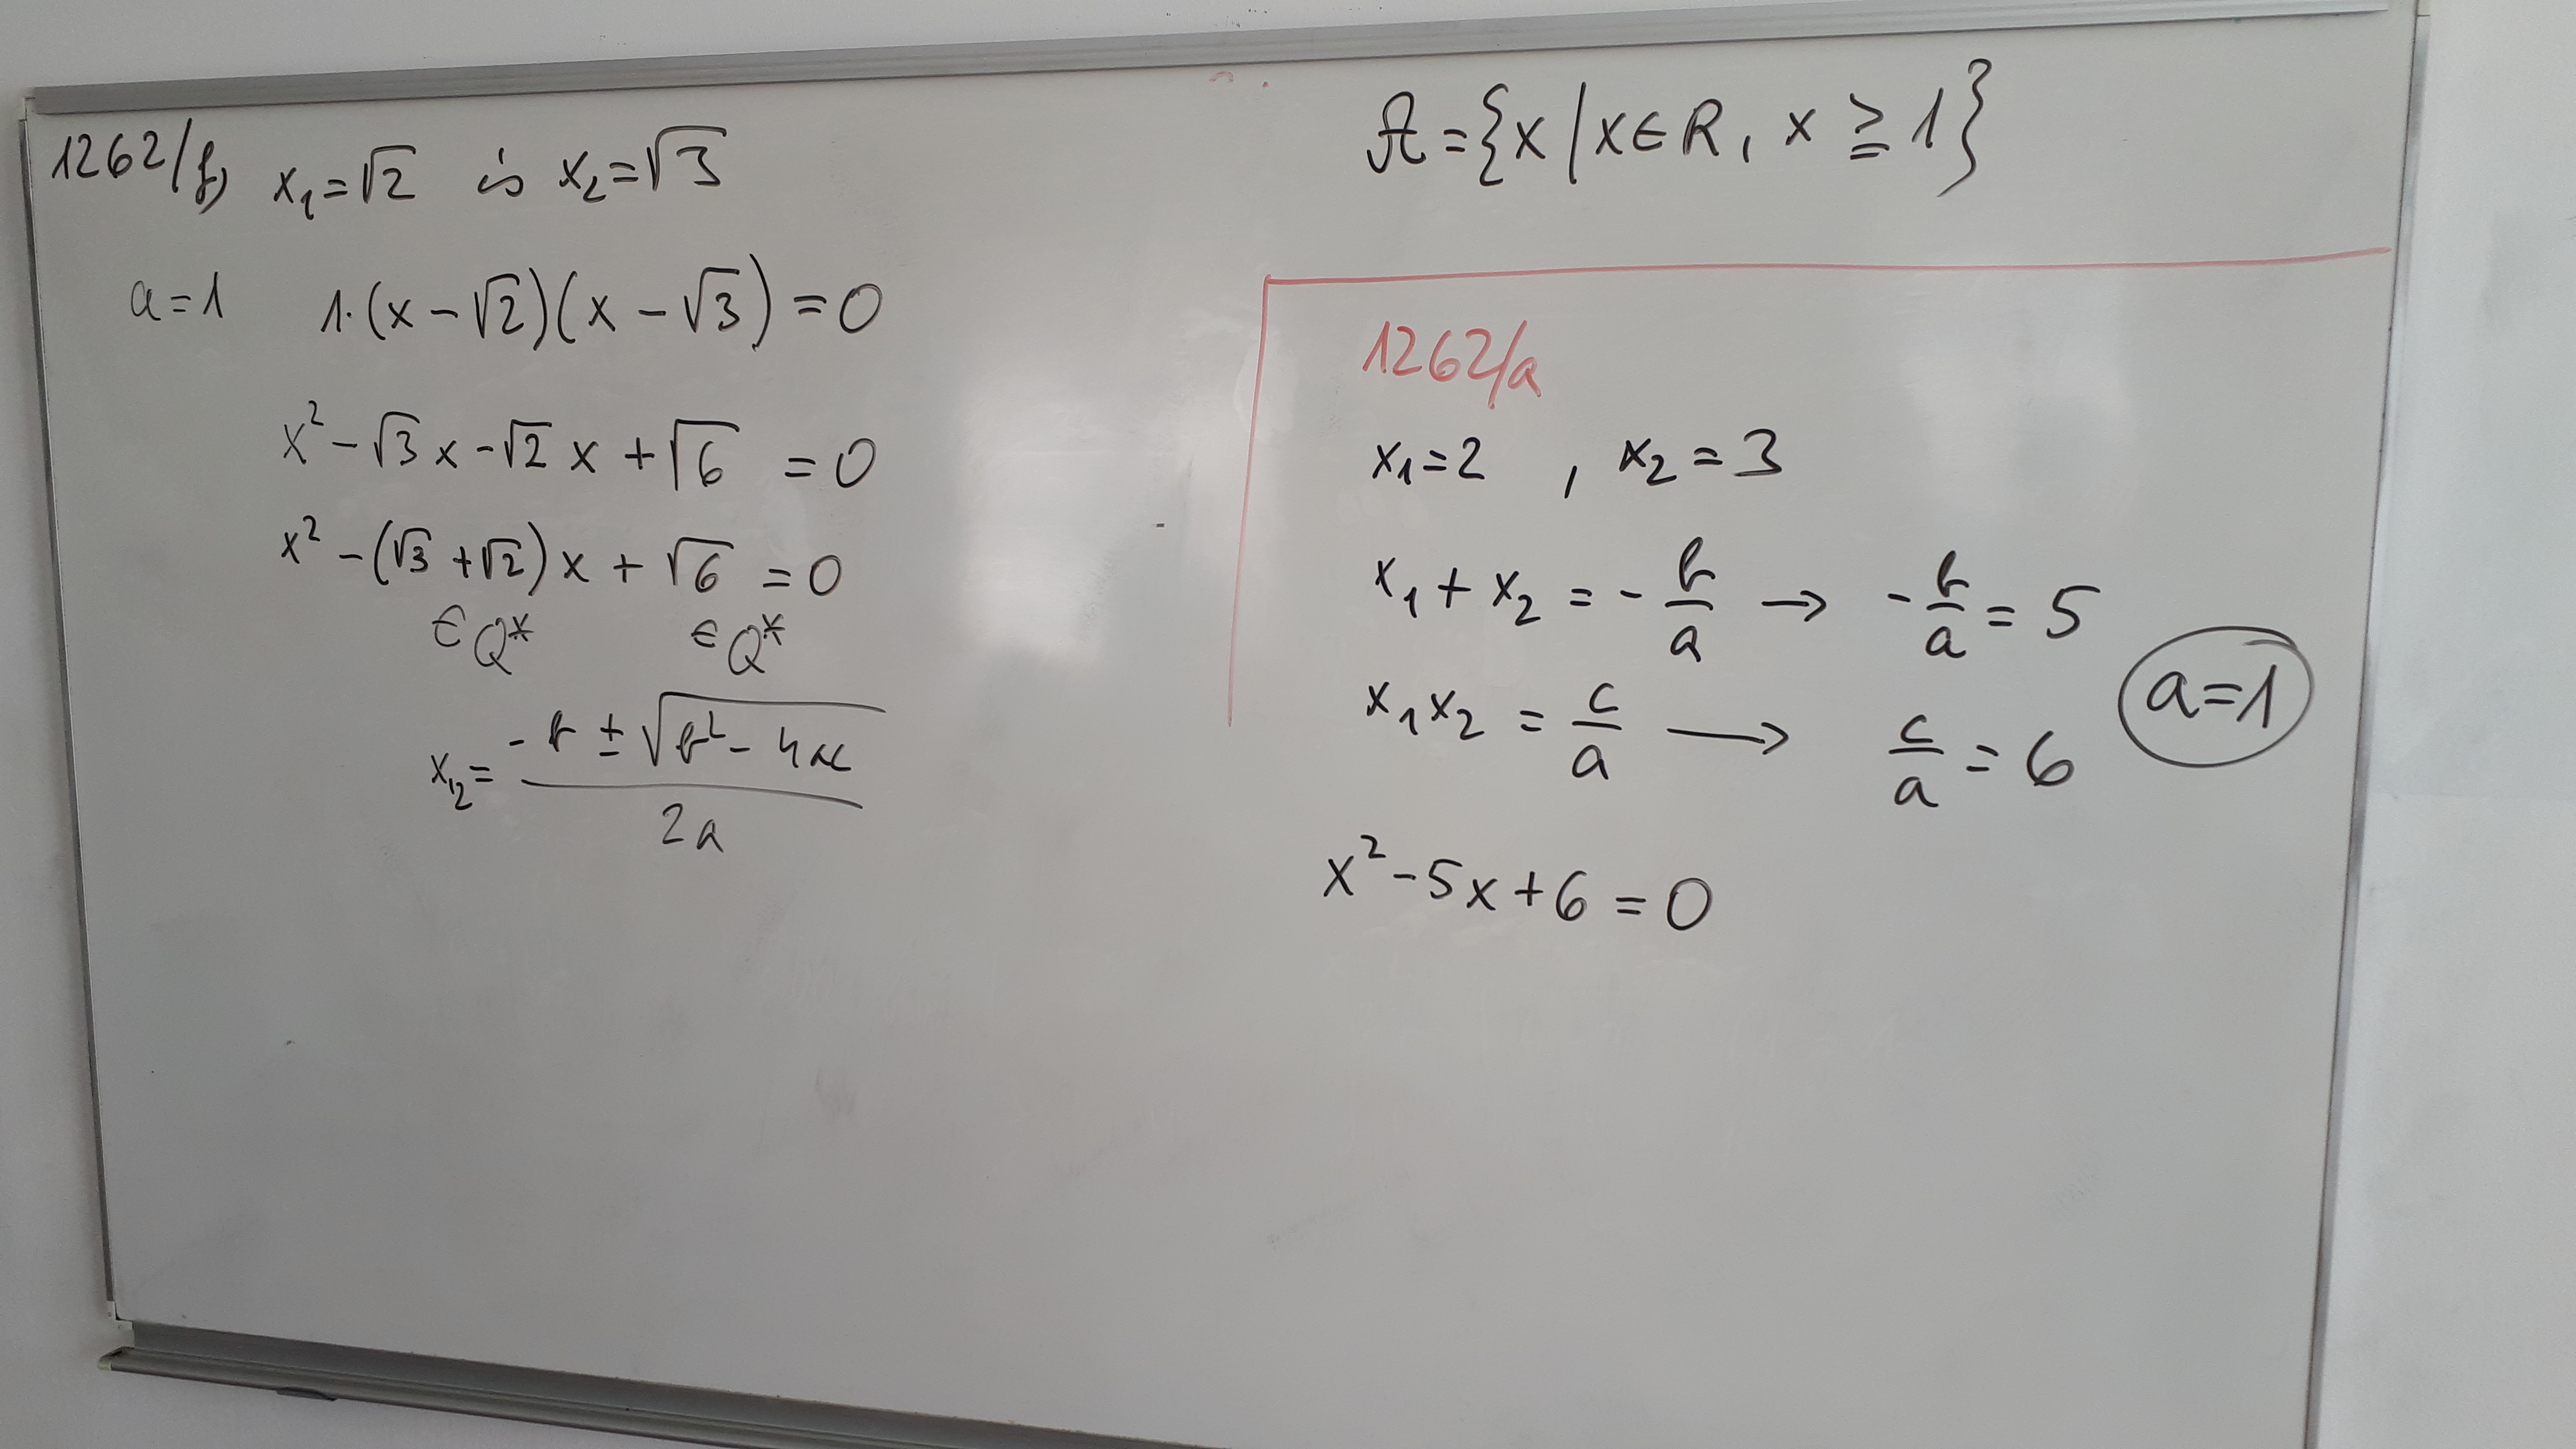 1262/f) x₁=√2 és x₂=√3
a=1 1·(x-√2)(x-√3)=0
x²-√3x-√2x+√6=0
x²-(√3+√2)x+√6=0
∈Q* ∈Q*
x₁,₂=(-b±√(b²-4ac))/2a
A={x/x∈R, x≧1}
1262/a
x₁=2, x₂=3
x₁+x₂=-b/a → -b/a=5
a=1
x₁x₂=c/a → c/a=6
x²-5x+6=0